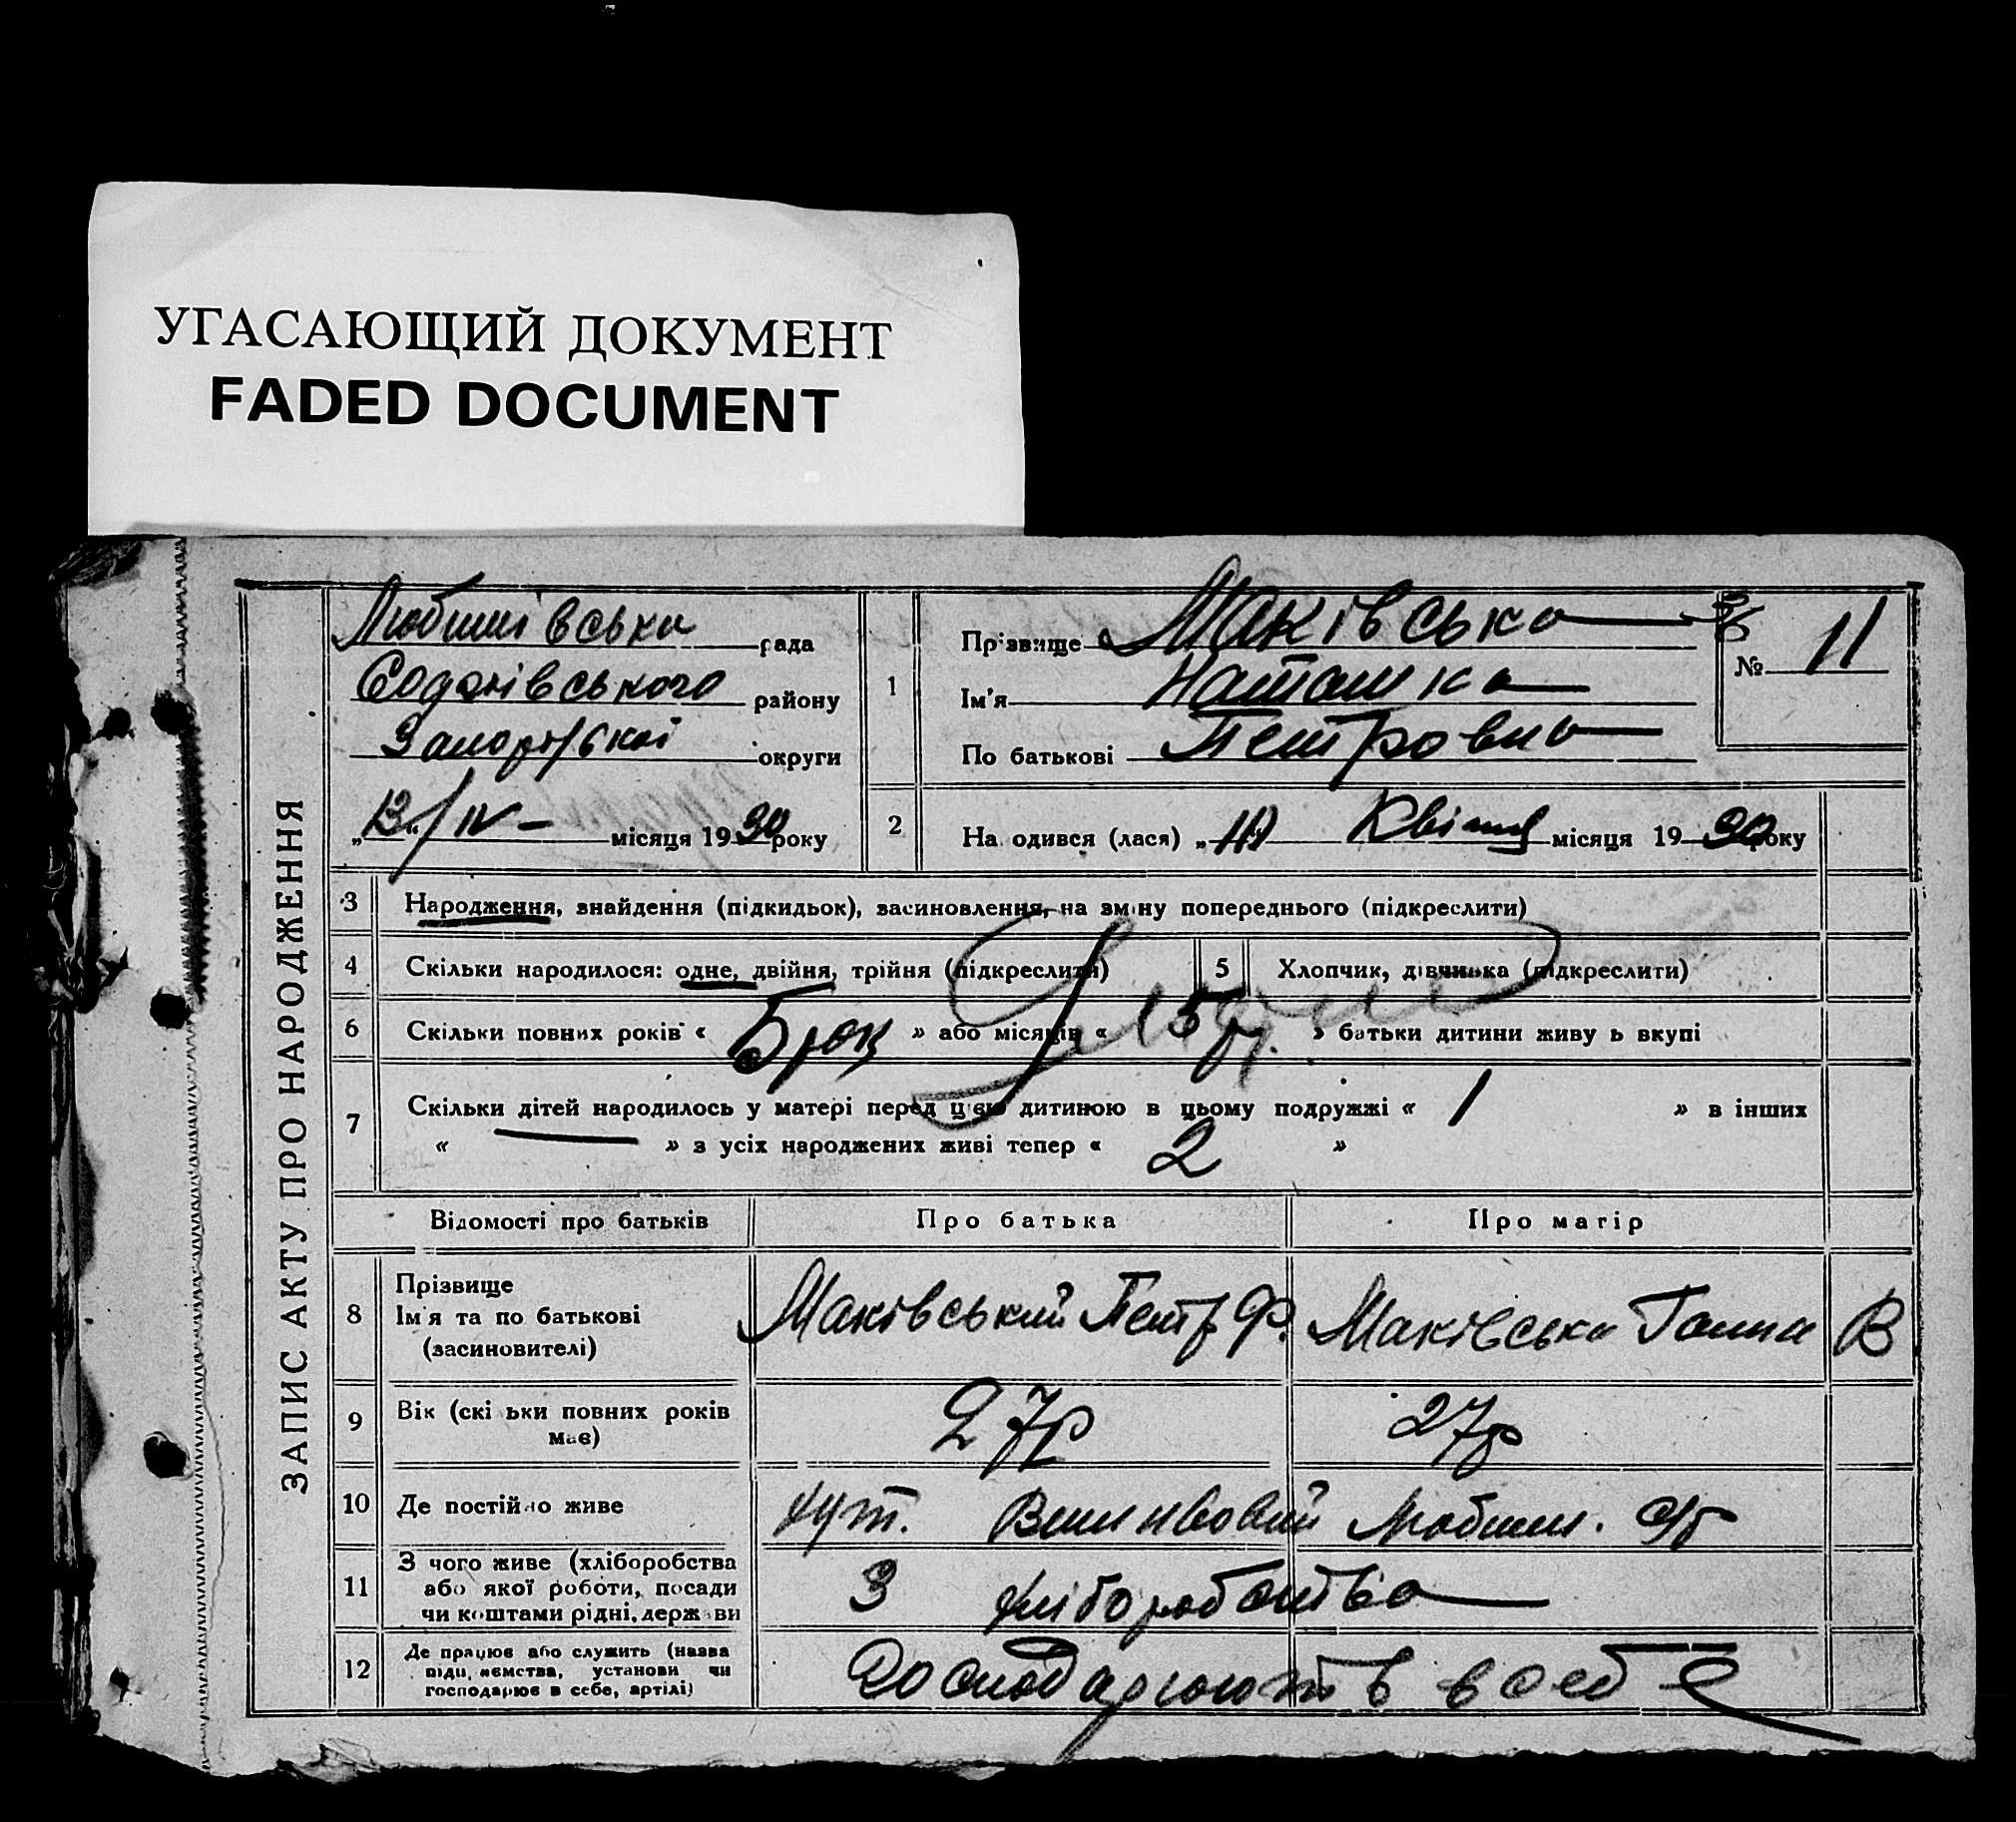 УГАСАЮЩИЙ ДОКУМЕНТ
FADED DOCUMENT
ЗАПИС АКТУ ПРО НАРОДЖЕННЯ
Любимівська рада
району
Запорізької округи
„ 13 / IV – місяця 1930 року
1
Прізвище Маківська
Ім'я Наташка
По батькові Петровна
№ 11
2
На одився (лася) „ 10 Квітня місяця 1930 року
3 Народження, знайдення (підкидьок), засиновлення, на зміну попереднього (підкреслити)
4 Скільки народилося: одне, двійня, трійня (підкреслити)
5 Хлопчик, дівчинка (підкреслити)
6 Скільки повних років « 5 рок » або місяців « » батьки дитини живу ь вкупі
7 Скільки дітей народилось у матері перед цією дитиною в цьому подружжі « 1 » в інших
« — » з усіх народжених живі тепер « 2 »
Відомості про батьків Про батька Про матір
8 Прізвище
Ім'я та по батькові
(засиновителі)
Маківський Петр Ф. Маківська Ганна В
9 Вік (скі ьки повних років
має)
27р 27р
10 Де постійно живе хут. Любим. с/р
11 З чого живе (хліборобства
або якої роботи, посади
чи коштами рідні, держ ви
З хліборобства
12 Де працює або служить (назва
підп. ємства, установи чи
господарює в себе, артілі)
Господарюють в себе